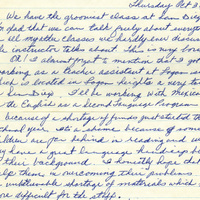 Thursday Oct 2
We have the grooviest class at San Diego
glad that we can talk freely about
all together classes we hardly ever
instructor talks about. This is very
Oh! I almost forgot to mention that I got
working as a Teachers assistant at Logan
is located in Logan heights a very
San Diego. I'll be working with Mexican
the English as a Second Language Program
because of a shortage of funds just started the
school year. its a shame because of some
children are far behind in reading and
have a great language handicap
their background. I honestly hope that
help them in overcoming their problems
unbelievable shortage of materials which
more difficult for the staff.